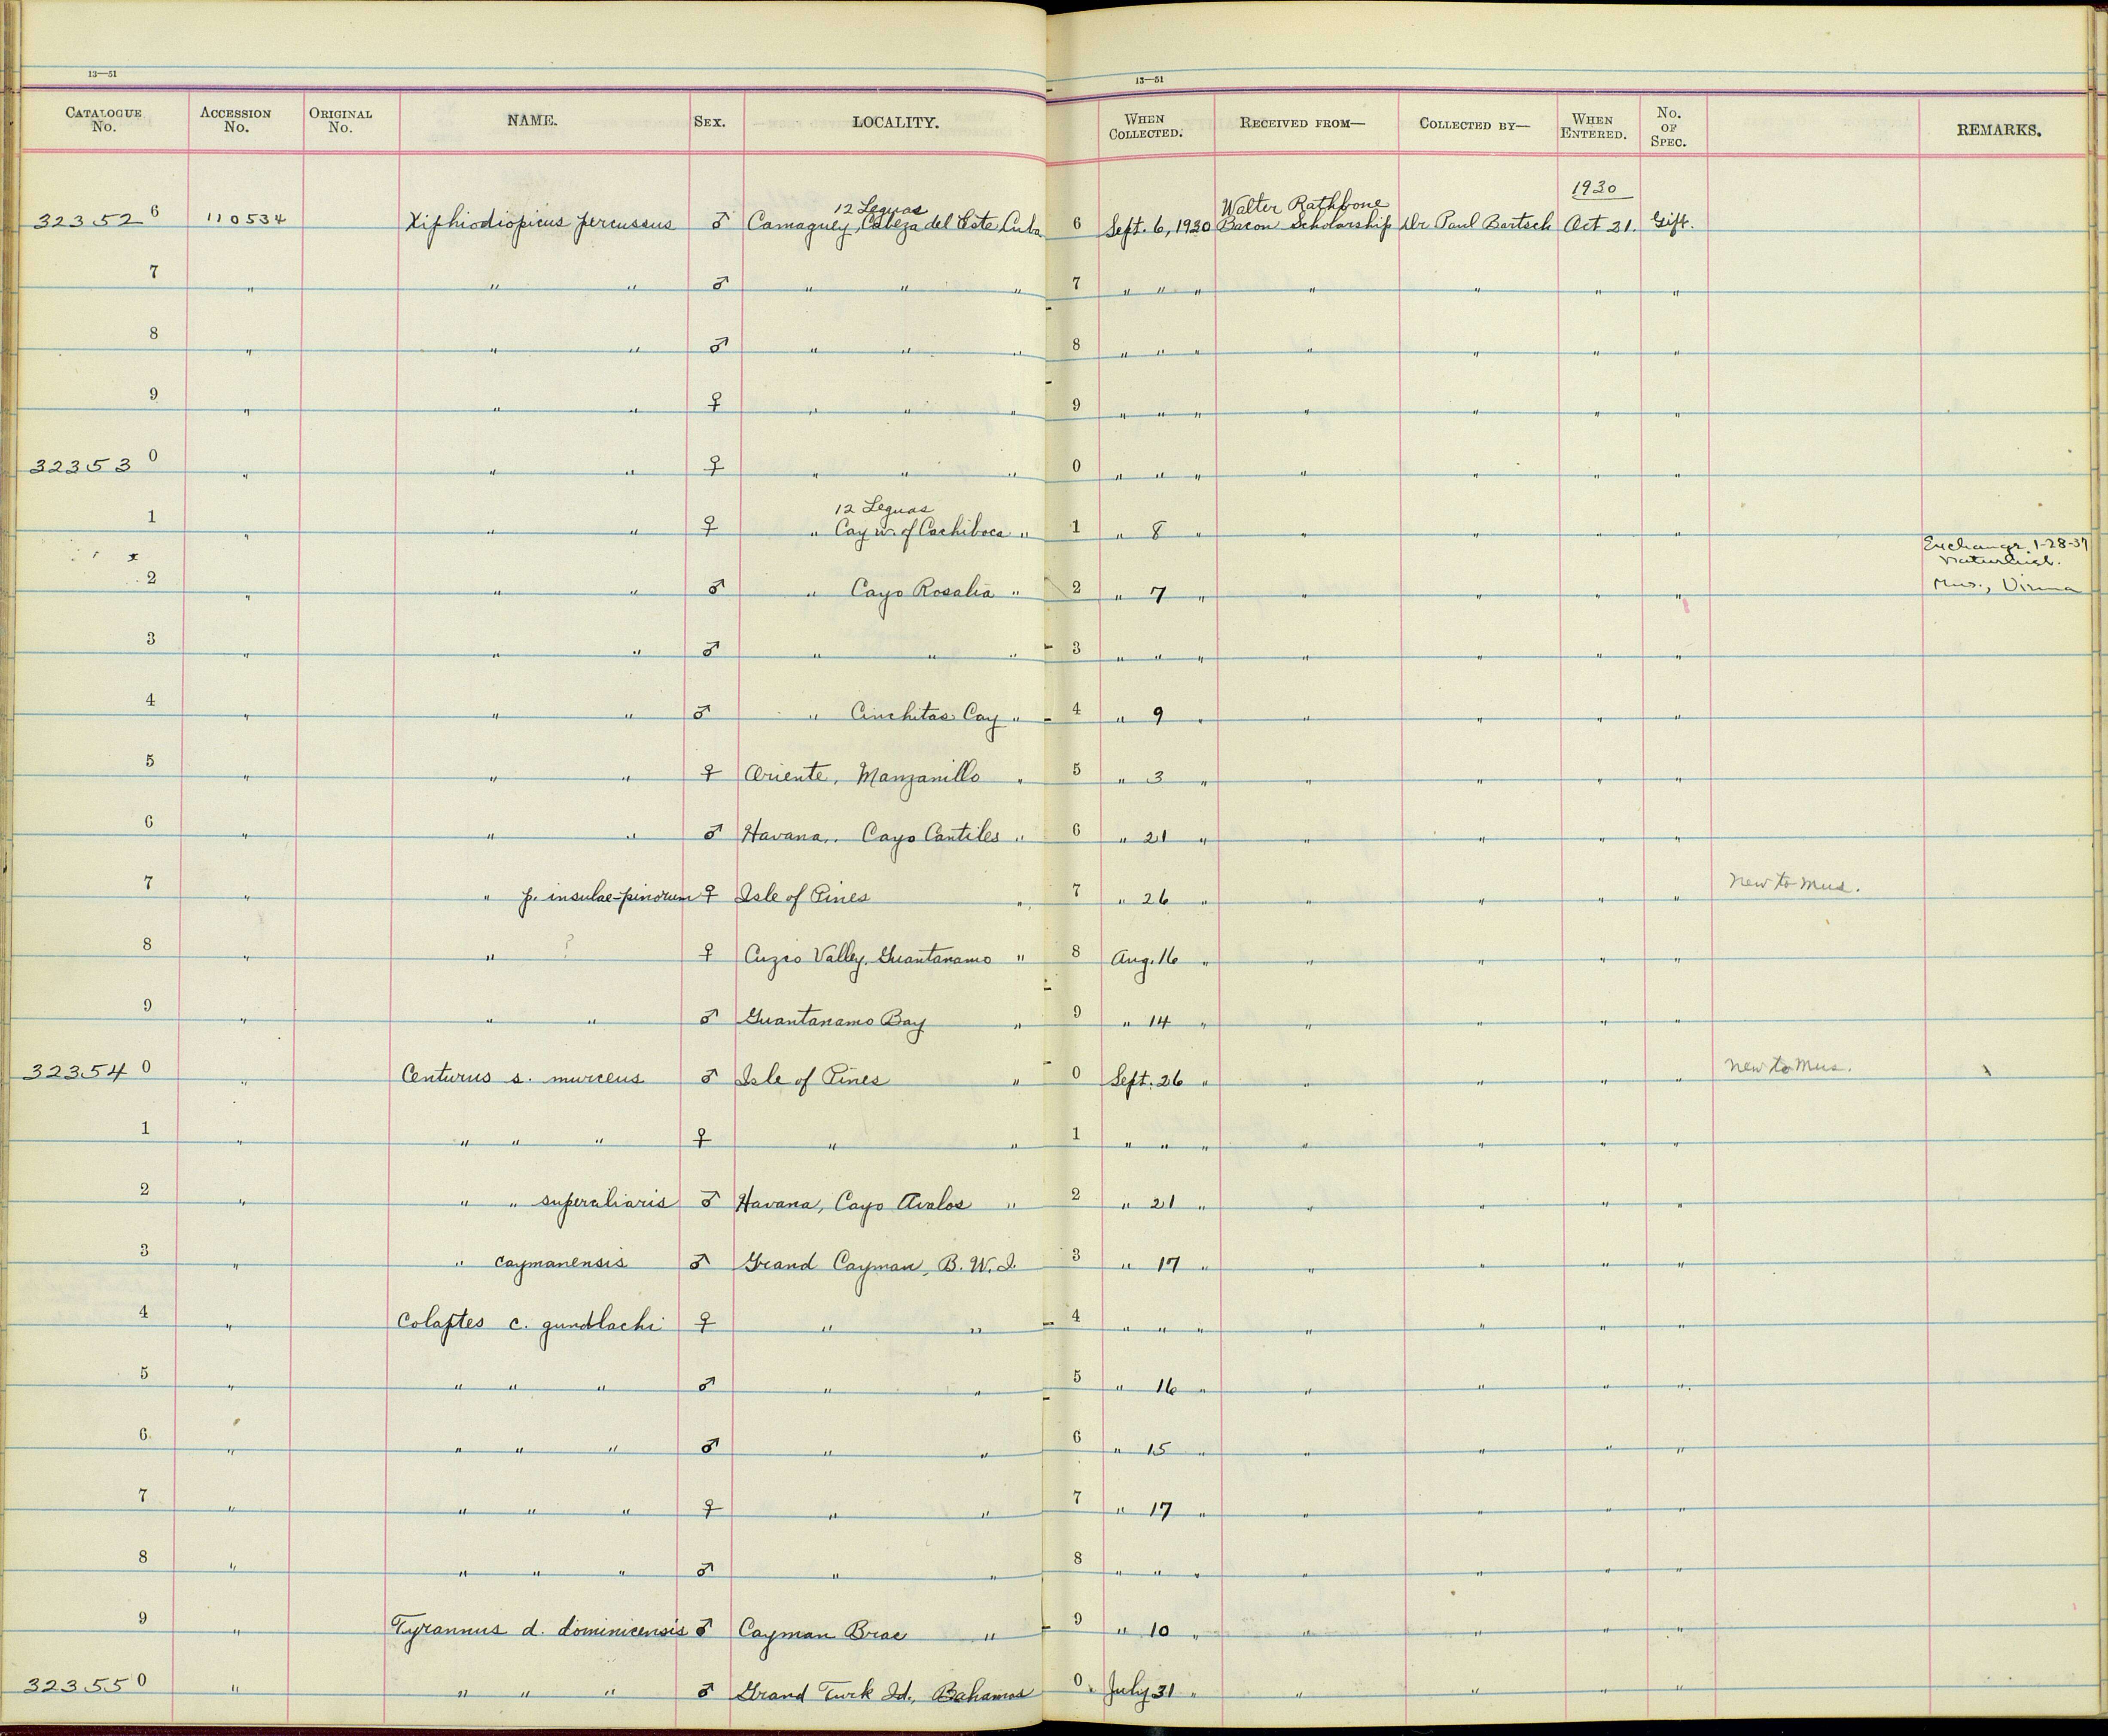 13—51 13—51
CATALOGUE No. ACCESSION No. ORIGINAL No. NAME. SEX. LOCALITY. WHEN COLLECTED. RECEIVED FROM— COLLECTED BY— WHEN ENTERED. No. OF SPEC. REMARKS.
12 Leguas Walter Rathbone 1930
32352 6 110534 Xiphidiopicus percussus ♂ Camaguey, Cabeza del Este Cuba 6 Sept. 6, 1930 Bacon Scholarship Dr Paul Bartsch Oct 21. Gift.
7 " " " ♂ " " " 7 " " " " " " "
8 " " " ♂ " " " 8 " " " " " " "
9 " " " ♀ " " " 9 " " " " " " "
32353 0 " " " ♀ " " " 0 " " " " " " "
12 Leguas
1 " " " ♀ " Cay w. of Cachiboca " 1 " 8 " " " " "
Exchange 1-28-37
2 " " " ♂ " Cayo Rosalia " 2 " 7 " " " " " Mus., Vienna
3 " " " ♂ " " " 3 " " " " " " "
4 " " " ♂ " Cinchitas Cay " 4 " 9 " " " " "
5 " " " ♀ Oriente, Manzanillo " 5 " 3 " " " " "
6 " " " ♂ Havana, Cayo Cantiles " 6 " 21 " " " " "
7 " " p. insulae-pinorum ♀ Isle of Pines " 7 " 26 " " " " " New to Mus.
8 " " ? ♀ Cuzco Valley, Guantanamo " 8 Aug. 16 " " " " "
9 " " " ♂ Guantanamo Bay " 9 " 14 " " " " "
32354 0 " Centurus s. murceus ♂ Isle of Pines " 0 Sept. 26 " " " " " New to Mus.
1 " " " " ♀ " " 1 " " " " " " "
2 " " " superciliaris ♂ Havana, Cayo Avalos " 2 " 21 " " " " "
3 " " caymanensis ♂ Grand Cayman, B. W. I. 3 " 17 " " " " "
4 " Colaptes c. gundlachi ♀ " " 4 " " " " " " "
5 " " " " ♂ " " 5 " 16 " " " " "
6 " " " " ♂ " " 6 " 15 " " " " "
7 " " " " ♀ " " 7 " 17 " " " " "
8 " " " " ♂ " " 8 " " " " " " "
9 " Tyrannus d. dominicensis ♂ Cayman Brac " 9 " 10 " " " " "
32355 0 " " " " ♂ Grand Turk Id., Bahamas 0 July 31 " " " " "